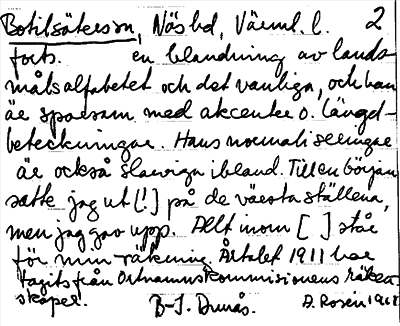 Botilsäkersn, Näs hd, Värml. l. 2
forts. en blandning av lands-
målsalfabetet och det vanliga, och han
är sparsam med akcenter o. längd-
beteckningar. Hans normaliseringar
är också slarviga ibland. Till en början
satte jag ut [!] på de värsta ställena,
men jag gav upp. Allt inom [ ] står
för min räkning. Årtalet 1911 har
tagits från Ortnamnskommissionens räken-
skaper.
B-I. Dunås. A. Rosén 1918